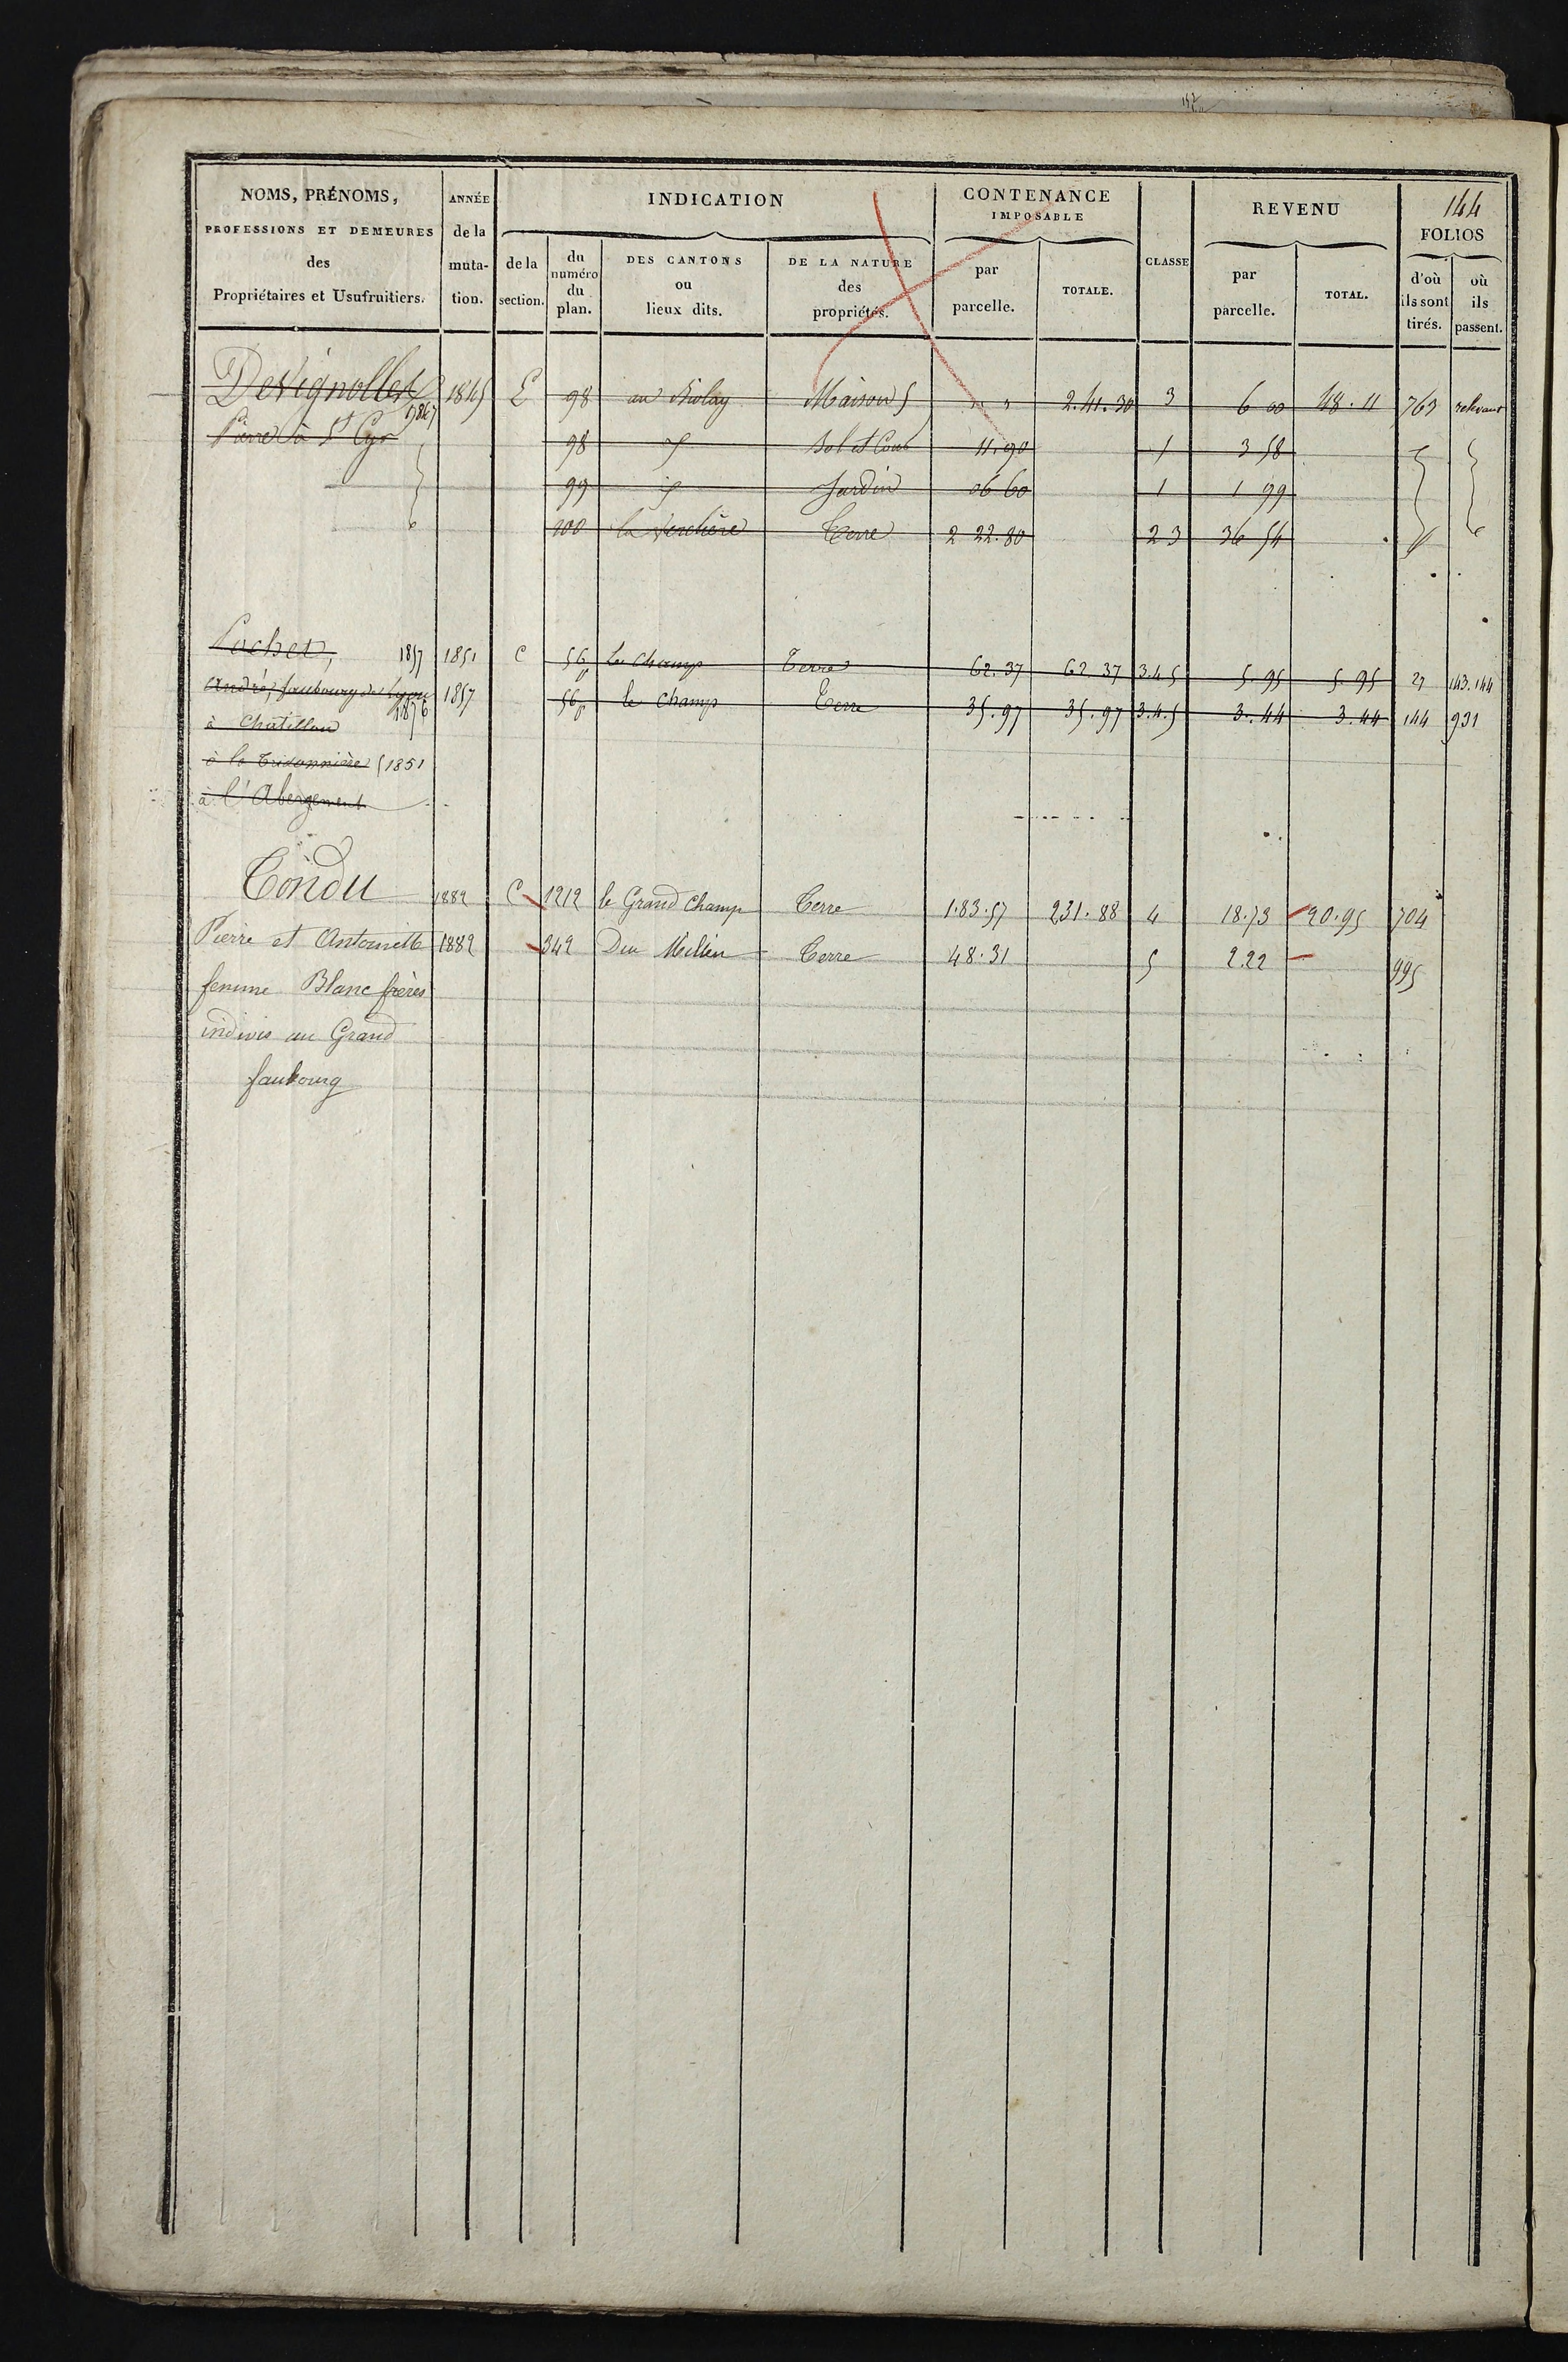 144
NOMS, PRÉNOMS, PROFESSIONS ET DEMEURES des Propriétaires et Usufruitiers.
ANNÉE de la mutation.
INDICATION
de la section.
du numéro du plan.
DES CANTONS ou lieux dits.
DE LA NATURE des propriétés.
CONTENANCE IMPOSABLE
par parcelle.
TOTALE.
CLASSE
REVENU
par parcelle.
TOTAL.
FOLIOS
d'où ils sont tirés.
où ils passent.
Devignolles 1845 E 98 au Biolay Maison " " 2.41.30 3 6 00 48.11 763
Pierre à St Cyr 1847 98 Sol et Cour 11.90 1 3 58
99 Jardin 06 60 1 1 99
100 la Verchère Terre 2 22.80 2 3 36 54
Pochet, 1857 1851 C 56p Le Champ Terre 62.37 62 37 3.4.5 5.95 5 95 27 143.144
André, faubourg de Lyon 1857 56p le Champ Terre 35.97 35.97 3.4.5 3.44 3.44 144 931
1876
à Chatillon
1851
à l'Abergement
Tondu 1882 C 1212 le Grand Champ Terre 1.83.57 231.88 4 18.73 20.95 704
Pierre et Antoinette 1882 342 Du Millieu Terre 48.31 5 2.22 995
femme Blanc frères
indivis au Grand
faubourg